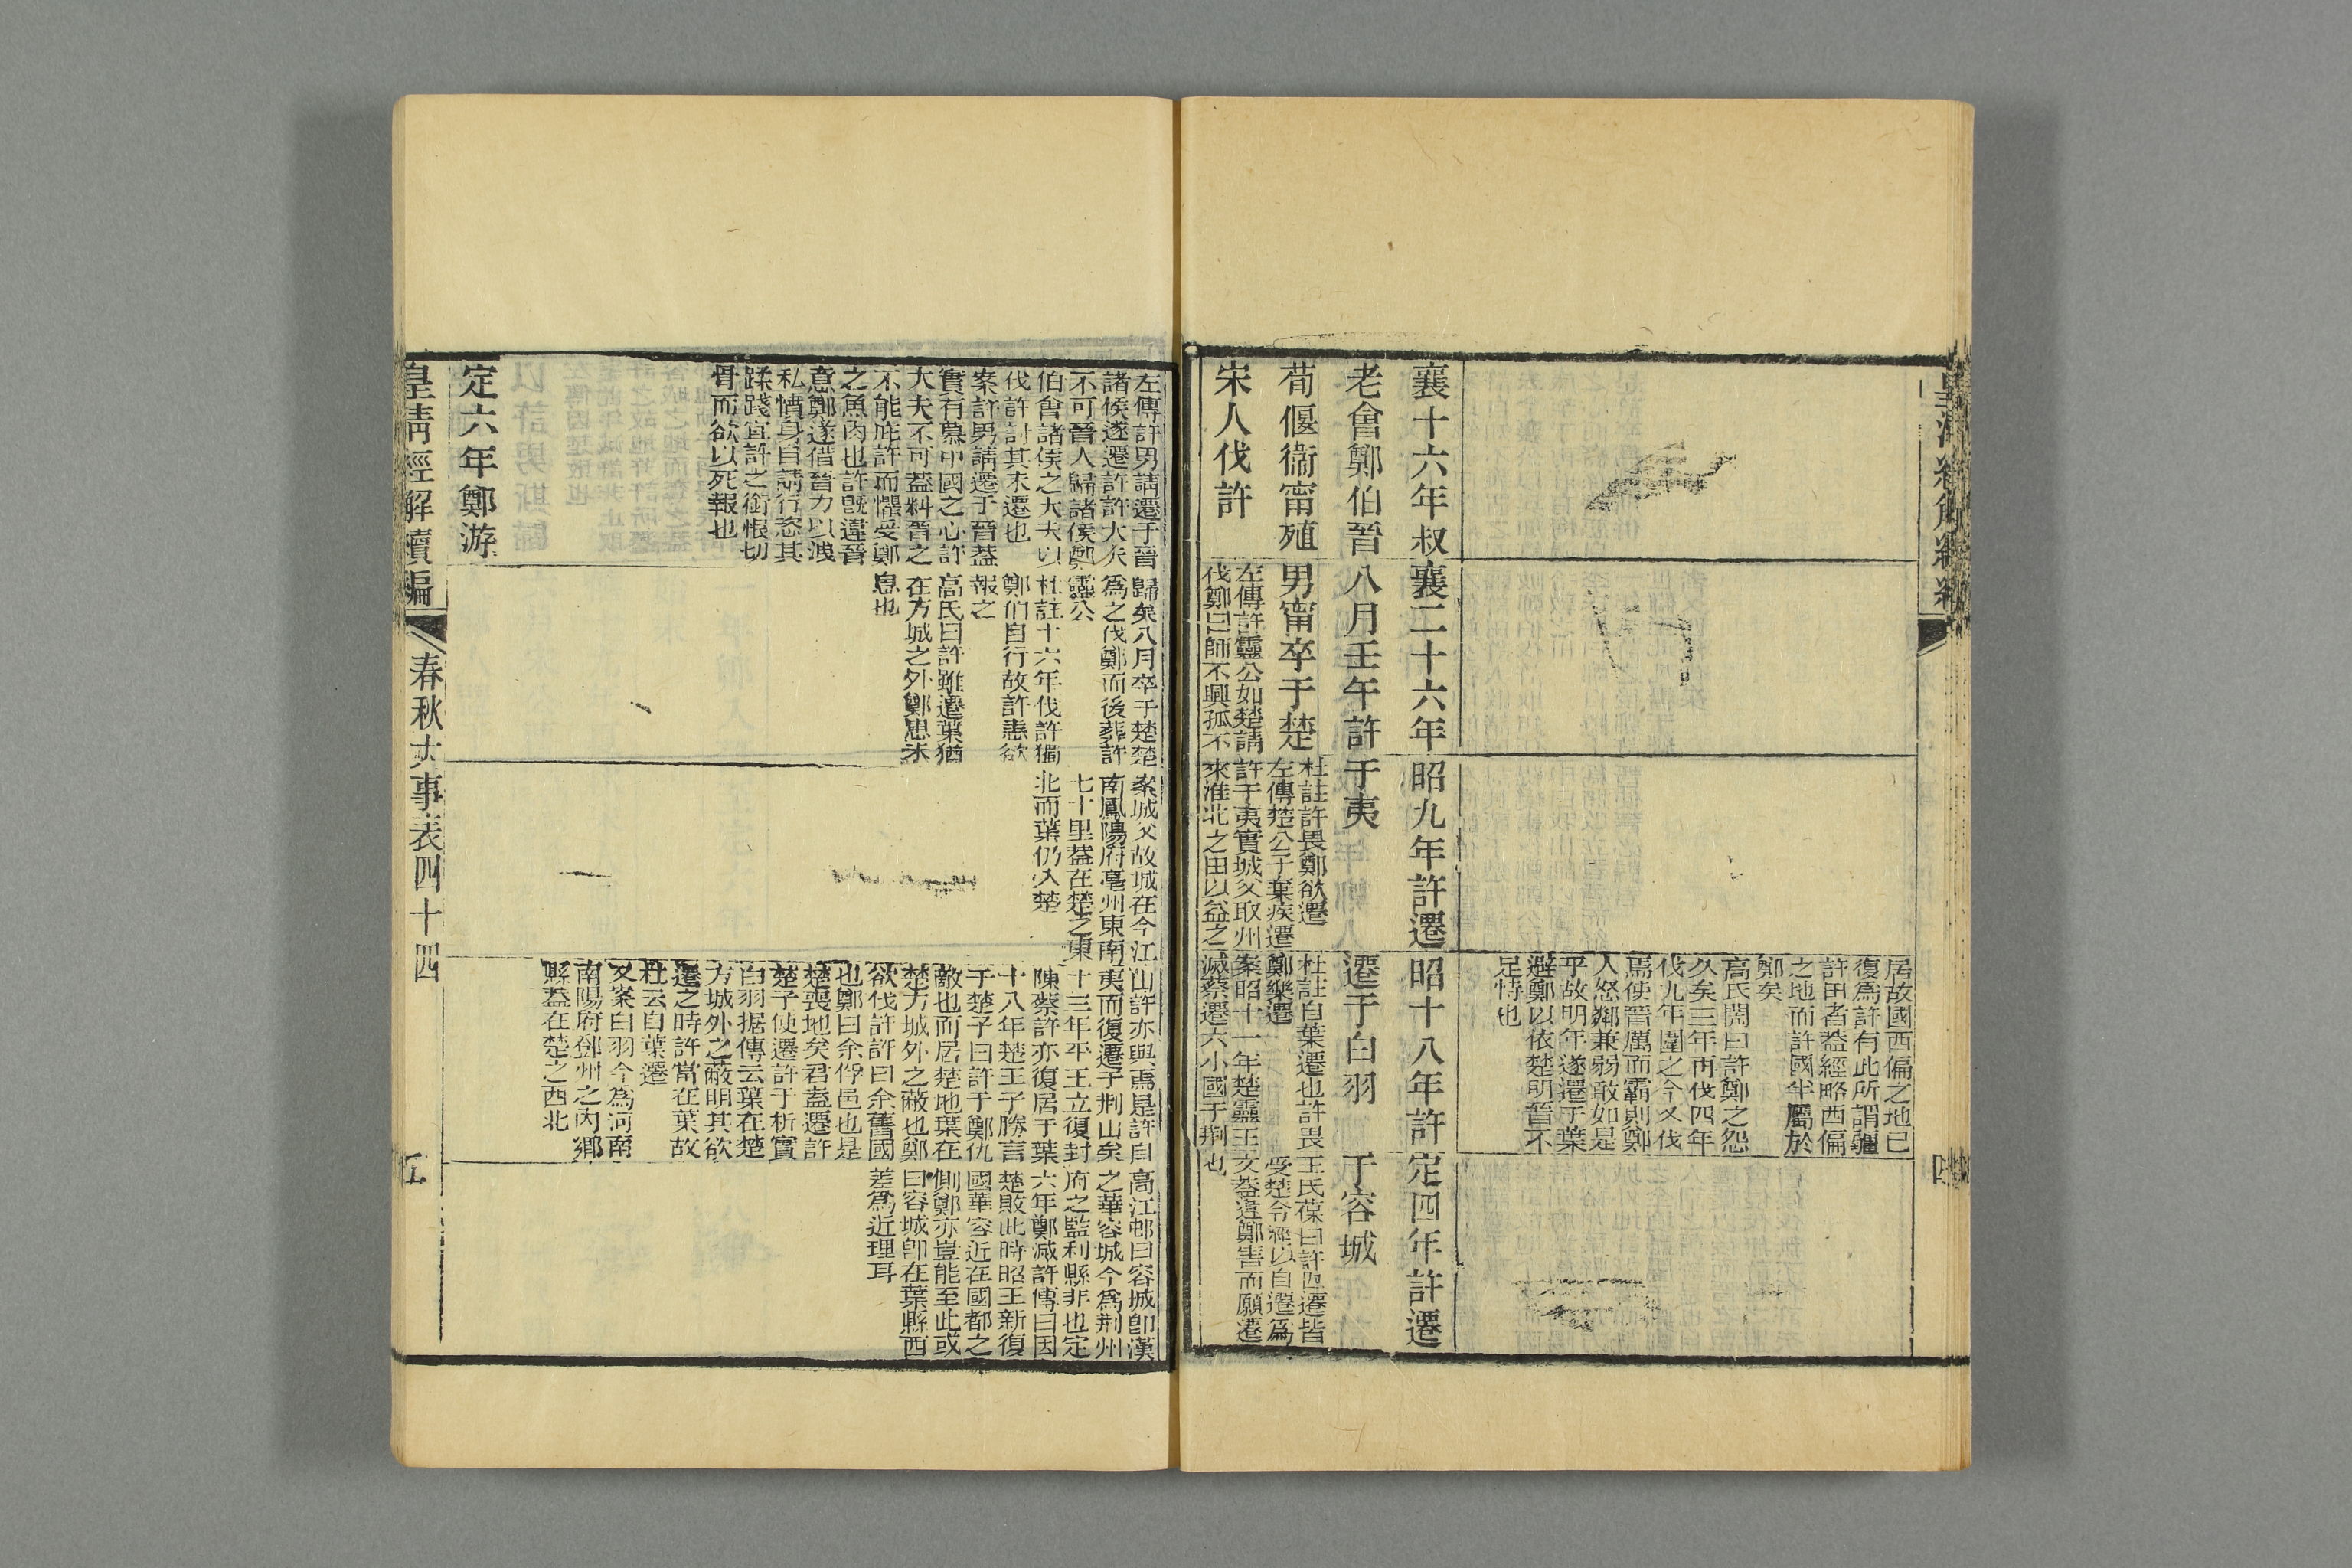 居故國西偏之地已
復為許有此所謂疆
許田者葢經略西偏
之地而許國半屬於
鄭矣
高氏閌曰許鄭之怨
久矣三年再伐四年
伐九年圍之今又伐
焉使晉厲而霸則鄭
人怒鄰兼弱敢如是
乎故明年遂遷于葉
避鄭以依楚明晉不
足恃也
襄十六年叔
老會鄭伯晉
荀偃衞甯殖
宋人伐許
襄二十六年
八月壬午許
男甯卒于楚
左傳許靈公如楚請
伐鄭曰師不興孤不
昭九年許遷
于夷
杜註許畏鄭欲遷
左傳楚公子棄疾遷
許于夷實城父取州
來淮北之田以益之
昭十八年許
遷于白羽
杜註自葉遷也許畏
鄭樂遷
案昭十一年楚靈王
滅蔡遷六小國于荆
定四年許遷
于容城
王氏葆曰許四遷皆
受楚令經以自遷為
文葢違鄭害而願遷
也
左傳許男請遷于晉
諸侯遂遷許許大夫
不可晉人歸諸侯鄭
伯會諸侯之大夫以
伐許討其未遷也
案許男請遷于晉葢
實有慕中國之心許
大夫不可葢料晉之
不能庇許而懼受鄭
之魚肉也許旣違晉
意鄭遂借晉力以洩
私憤身自請行恣其
蹂踐宜許之銜恨切
骨而欲以死報也
歸矣八月卒于楚楚
為之伐鄭而後葬許
靈公
杜註十六年伐許獨
鄭伯自行故許恚欲
報之
高氏曰許雖遷葉猶
在方城之外鄭患未
息也
案城父故城在今江
南鳳陽府亳州東南
七十里葢在楚之東
北而葉仍入楚
山許亦與焉是許自
夷而復遷于荆山矣
十三年平王立復封
陳蔡許亦復居于葉
十八年楚王子勝言
于楚子曰許于鄭仇
敵也而居楚地葉在
楚方城外之蔽也鄭
欲伐許許曰余舊國
也鄭曰余俘邑也是
楚喪地矣君盍遷許
楚子使遷許于析實
白羽据傳云葉在楚
方城外之蔽明其欲
遷之時許當在葉故
杜云自葉遷
又案白羽今為河南
南陽府鄧州之內鄉
縣葢在楚之西北
高江邨曰容城卽漢
之華容城今為荆州
府之監利縣非也定
六年鄭滅許傳曰因
楚敗此時昭王新復
國華容近在國都之
側鄭亦豈能至此或
曰容城卽在葉縣西
差為近理耳
定六年鄭游
皇淸經解續編
春秋大事表四十四
五